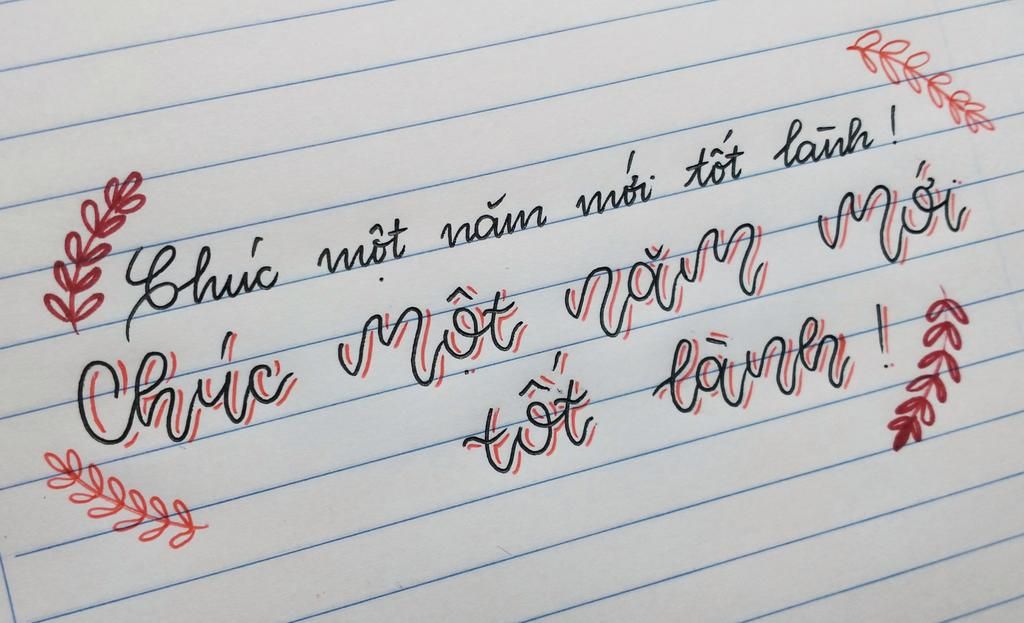 Chúc một năm mới tốt lành!
Chúc một năm mới
tốt lành!